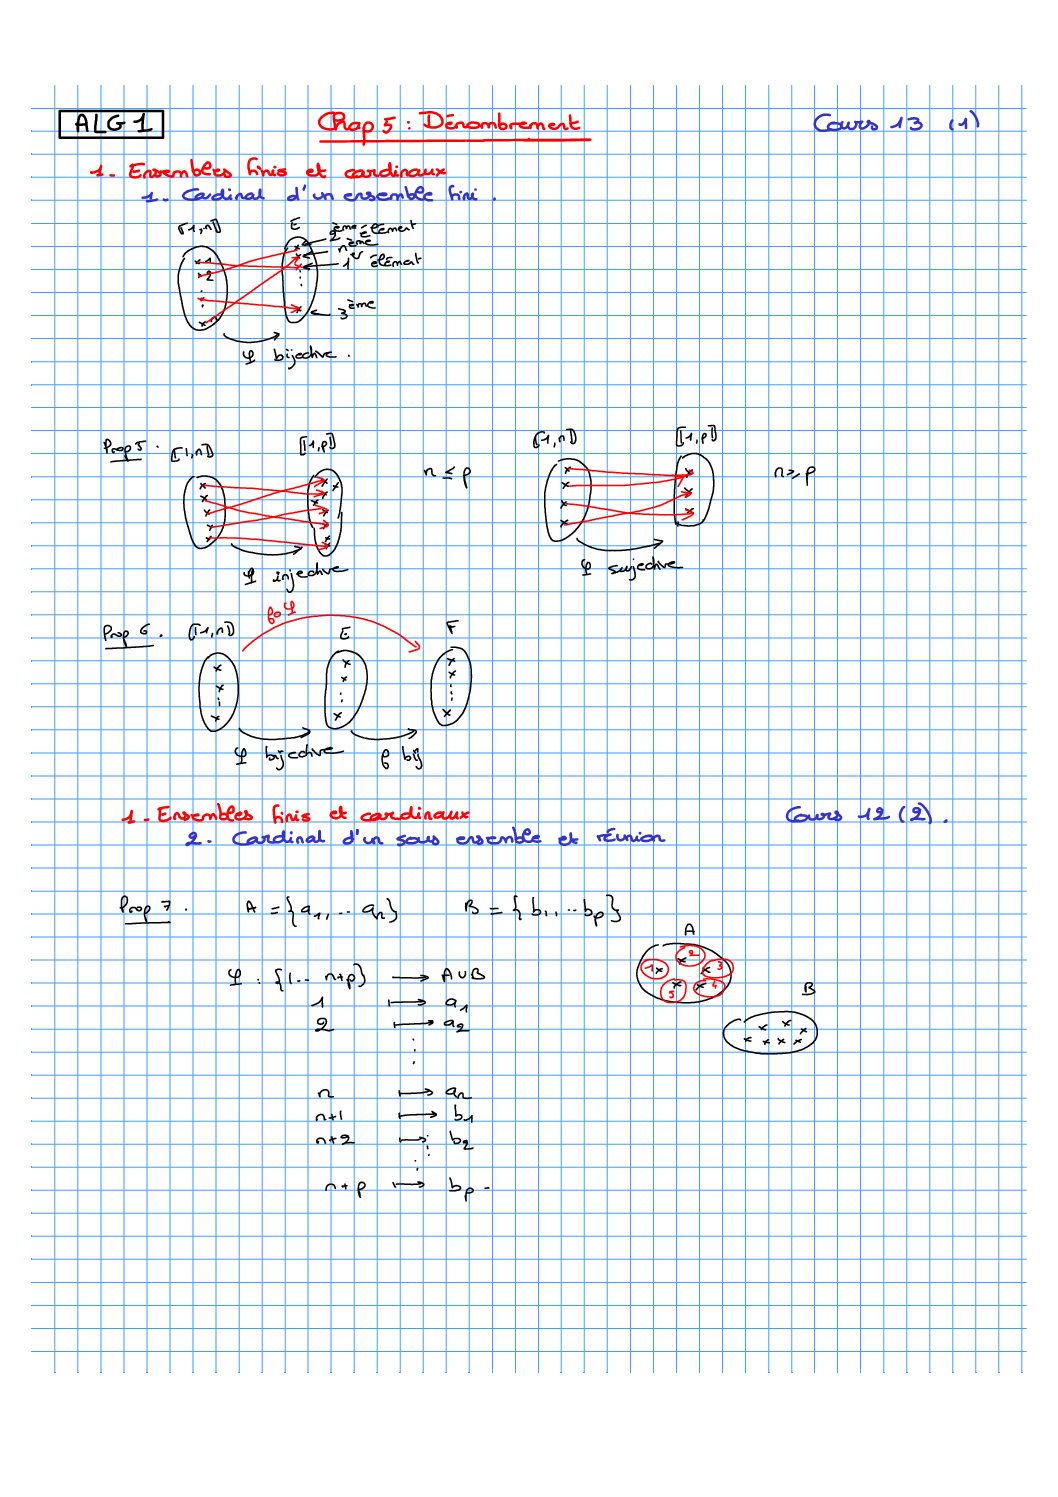 ALG 1 Chap 5 : Dénombrement Cours 13 (1)
1. Ensembles finis et cardinaux
1. Cardinal d'un ensemble fini.
⟦1,n⟧ E
2ème élément
nème
1er élément
3ème
1
2
n
φ bijective.
Prop 5. ⟦1,n⟧ ⟦1,p⟧ n ≤ p ⟦1,n⟧ ⟦1,p⟧ n ≥ p
φ injective φ sujective
f∘φ
Prop 6. ⟦1,n⟧ E F
φ bijective f bij
1. Ensembles finis et cardinaux Cours 12 (2).
2. Cardinal d'un sous ensemble et réunion
Prop 7. A = {a1, ... an} B = {b1, ... bp}
A
1 2 3 4 5
B
φ : {1... n+p} → A∪B
1 ↦ a1
2 ↦ a2
⋮
n ↦ an
n+1 ↦ b1
n+2 ↦ b2
⋮
n+p ↦ bp.